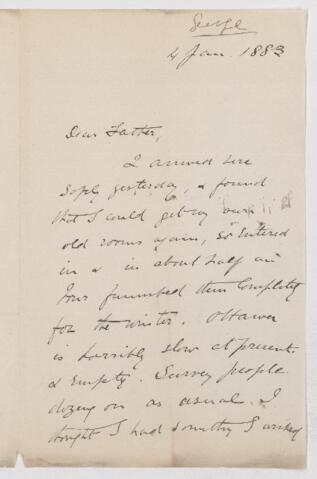 George
4 Jan. 1883
Dear Father,
I arrived here
safely yesterday, & found
that I could get my own
old rooms again, so entered
in & in about half an
hour furnished them completely
for the winter. Ottawa
is horribly slow at present
& empty. Survey people
dozing on as usual. I
thought I had something I wished